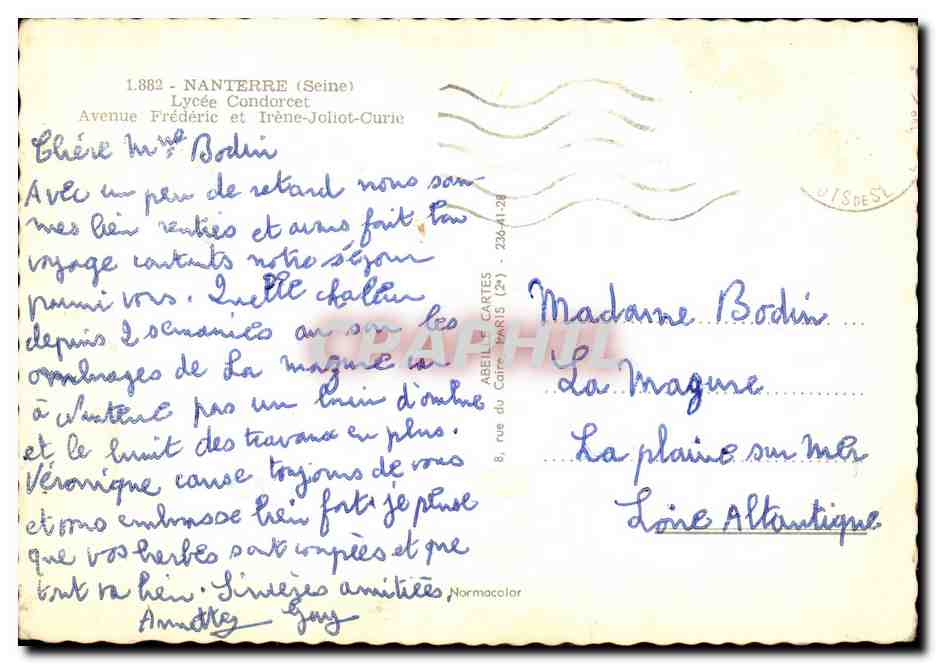 1.882 - NANTERRE (Seine)
Lycée Condorcet
Avenue Frédéric et Irène-Joliot-Curie
Chére Mme Bodin
Avec un peu de retard nous som-
mes bien rentrés et avons fait bon
voyage contents notre séjour
parmi vous. Quelle chaleur
depuis 2 semaines au son les
ombrages de La Magure car
à Nanterre pas un brin d'ombre
et le bruit des travaux en plus.
Véronique cause toujours de vous
et vous embrasse bien fort. je pense
que vos herbes sont coupées et que
tout va bien. Sincères amitiées,
Annette Guy
ABEILLE CARTES
8, rue du Caire PARIS (2e) - 236-41-28
Normacolor
CRAPHIL
Madame Bodin
La Magure
La plaine sur Mer
Loire Altantique